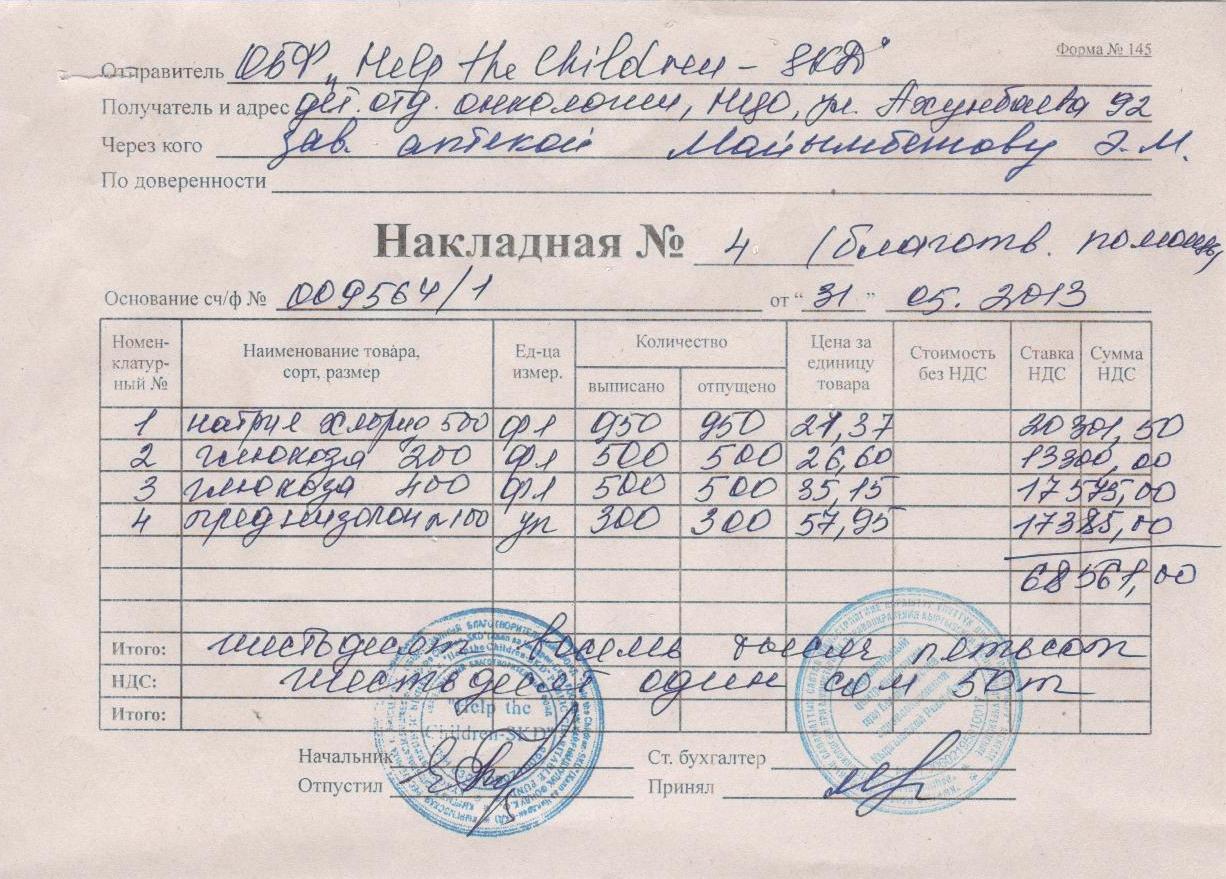 Форма № 145
Отправитель ОБФ „Help the Children - SKD"
Получатель и адрес дет. отд. онкологии, НЦО, ул. Ахунбаева 92
Через кого Зав. аптекой Майымбетову Э.М.
По доверенности
Накладная № 4 (благотв. помощь)
Основание сч/ф № 009564/1 от “31” 05. 2013
Номенклатурный № Наименование товара, сорт, размер Ед-ца измер. Количество выписано отпущено Цена за единицу товара Стоимость без НДС Ставка НДС Сумма НДС
1 натрия хлорид 500 фл 950 950 21,37 20301,50
2 глюкоза 200 фл 500 500 26,60 13300,00
3 глюкоза 400 фл 500 500 35,15 17575,00
4 преднизолон №100 уп 300 300 57,95 17385,00
68561,00
Итого: шестьдесят восемь тысяч пятьсот
НДС: шестьдесят один сом 50т
Итого:
"Help the
Children-SKD"
Начальник Ст. бухгалтер
Отпустил Принял